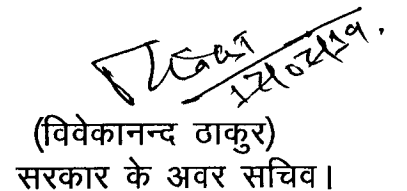 17/02/19.
(विवेकानन्द ठाकुर)
सरकार के अवर सचिव।